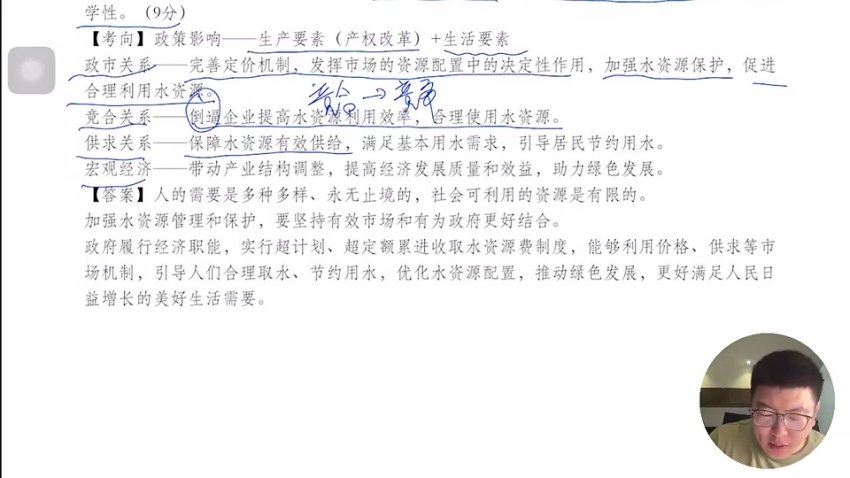 学性。（9分）
【考向】政策影响——生产要素（产权改革）+生活要素
政市关系——完善定价机制，发挥市场的资源配置中的决定性作用，加强水资源保护，促进
合理利用水资源。
竞合关系——倒逼企业提高水资源利用效率，合理使用水资源。
供求关系——保障水资源有效供给，满足基本用水需求，引导居民节约用水。
宏观经济——带动产业结构调整，提高经济发展质量和效益，助力绿色发展。
【答案】人的需要是多种多样、永无止境的，社会可利用的资源是有限的。
加强水资源管理和保护，要坚持有效市场和有为政府更好结合。
政府履行经济职能，实行超计划、超定额累进收取水资源费制度，能够利用价格、供求等市
场机制，引导人们合理取水、节约用水，优化水资源配置，推动绿色发展，更好满足人民日
益增长的美好生活需要。